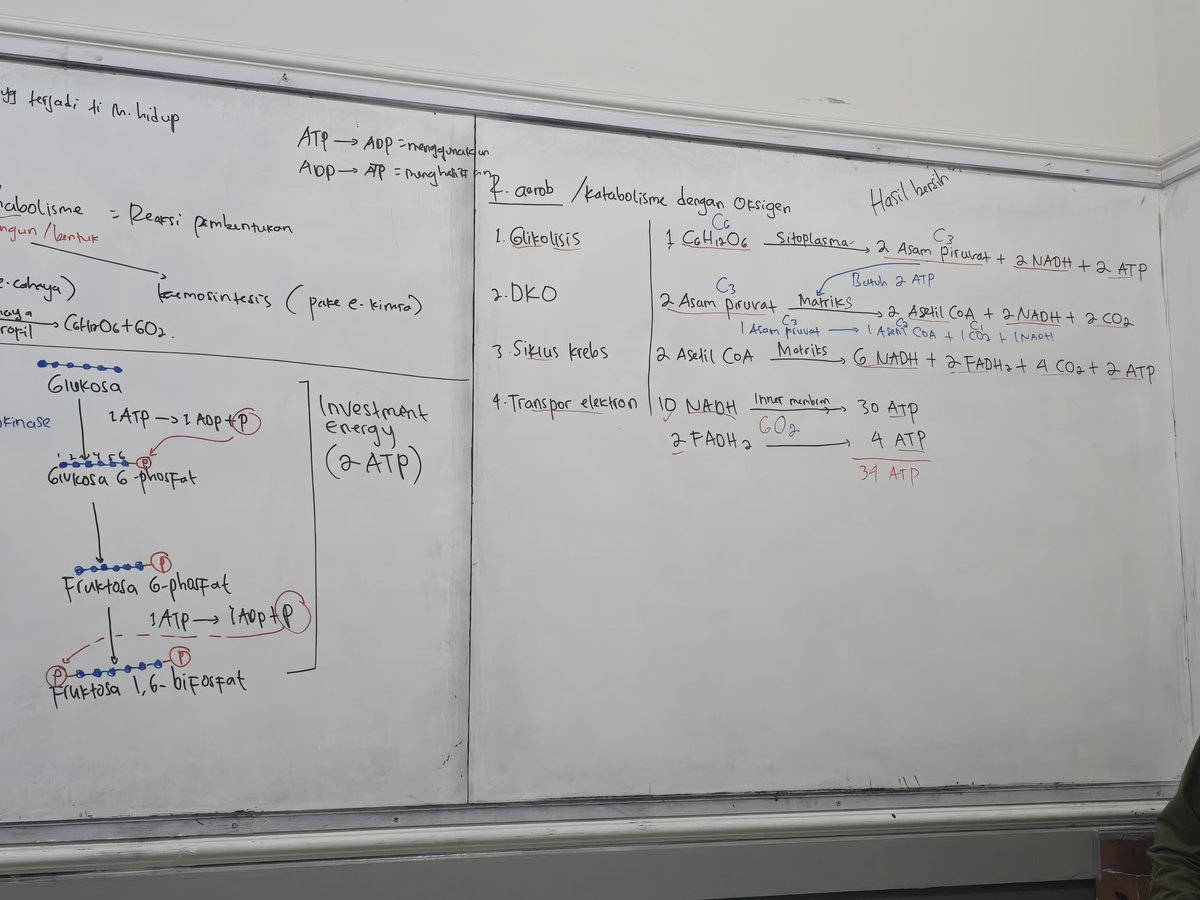 yg terjadi ti M. hidup
ATP → ADP = menggunakan
ADP → ATP = menghasilkan
nabolisme = Reaksi pembentukan
ngun/bentuk
e. cahaya)
kemosintesis (pake e. kimia)
haya
ropil → C6H12O6 + 6O2.
Glukosa
okinase
1 ATP → 1 ADP + P
1 2 3 4 5 6 P
Glukosa 6-phosfat
P
Fruktosa 6-phosfat
1 ATP → 1 ADP + P
P P
Fruktosa 1,6-bifosfat
Investment
Energy
(2 ATP)
R. aerob / Katabolisme dengan Oksigen
Hasil bersih
C6 C3
1. Glikolisis 1 C6H12O6 Sitoplasma → 2 Asam piruvat + 2 NADH + 2 ATP
Butuh 2 ATP
C3
2. DKO 2 Asam piruvat Matriks → 2 Asetil CoA + 2 NADH + 2 CO2
C3 C2 C1
1 Asam piruvat → 1 Asetil CoA + 1 CO2 + 1 NADH
3. Siklus krebs 2 Asetil CoA Matriks → 6 NADH + 2 FADH2 + 4 CO2 + 2 ATP
4. Transpor elektron 10 NADH Inner membran → 30 ATP
6O2
2 FADH2 → 4 ATP
34 ATP